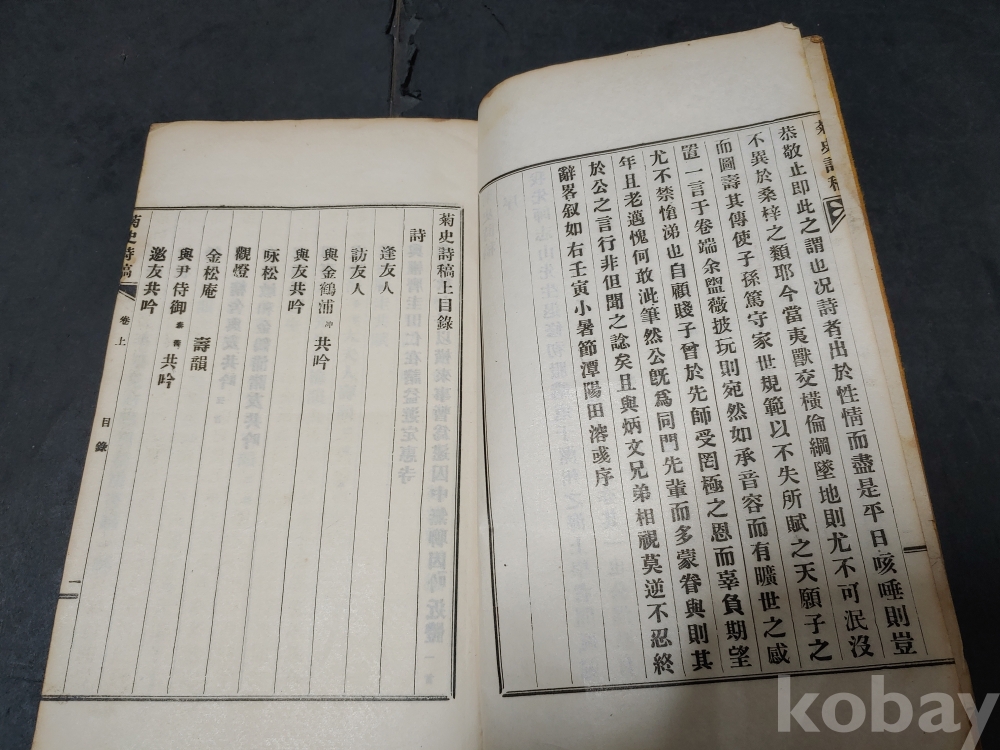 菊史詩稿
恭敬止即此之謂也況詩者出於性情而盡是平日咳唾則豈
不異於桑梓之類耶今當夷獸交橫倫綱墜地則尤不可泯沒
而圖壽其傳使子孫篤守家世規範以不失所賦之天願子之
置一言于卷端余盥薇披玩則宛然如承音容而有曠世之感
尤不禁愴涕也自顧賤子曾於先師受罔極之恩而辜負期望
年且老邁愧何敢泚筆然公旣爲同門先輩而多蒙眷與則其
於公之言行非但聞之諗矣且與炳文兄弟相視莫逆不忍終
辭畧叙如右壬寅小暑節潭陽田溶彧序
菊史詩稿上目錄
詩
逢友人
訪友人
與金鶴浦冲共吟
與友共吟
咏松
觀燈
金松庵 壽韻
與尹侍御 共吟
邀友共吟
菊史詩稿 卷上 目錄 一
kobay